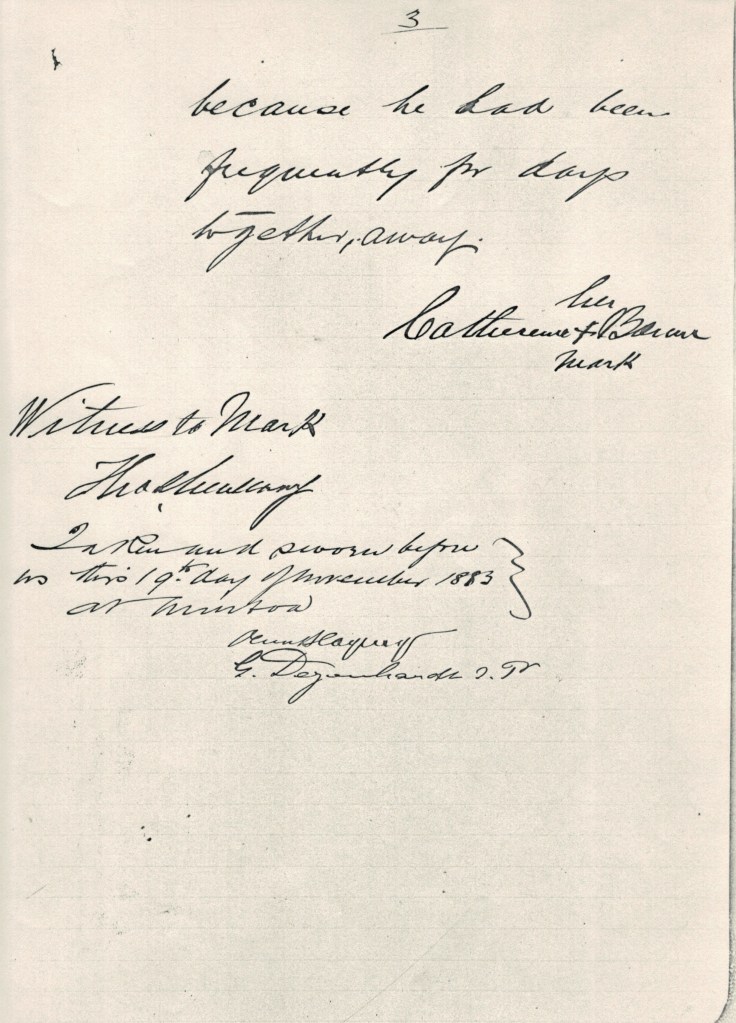 3
because he had been
frequently for days
together, away.
her
Catherine X
mark
Witness to Mark
Taken and sworn before
us this 19th day of November 1883
at Murtoa
G. Degenhardt J.P.